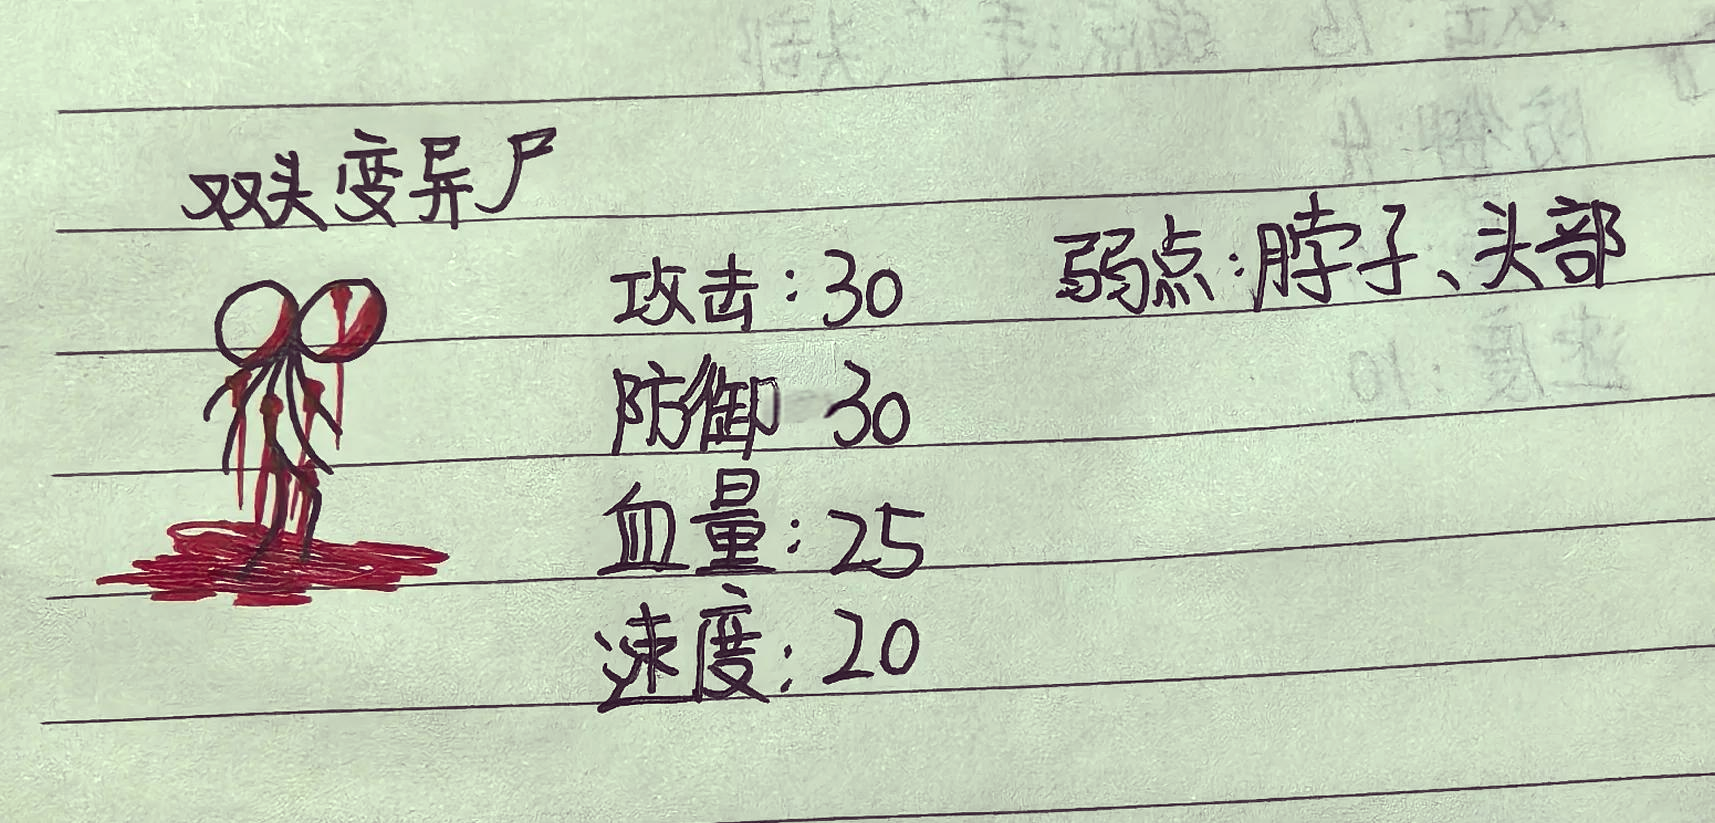 双头变异尸
攻击:30 弱点:脖子、头部
防御 30
血量:25
速度:20